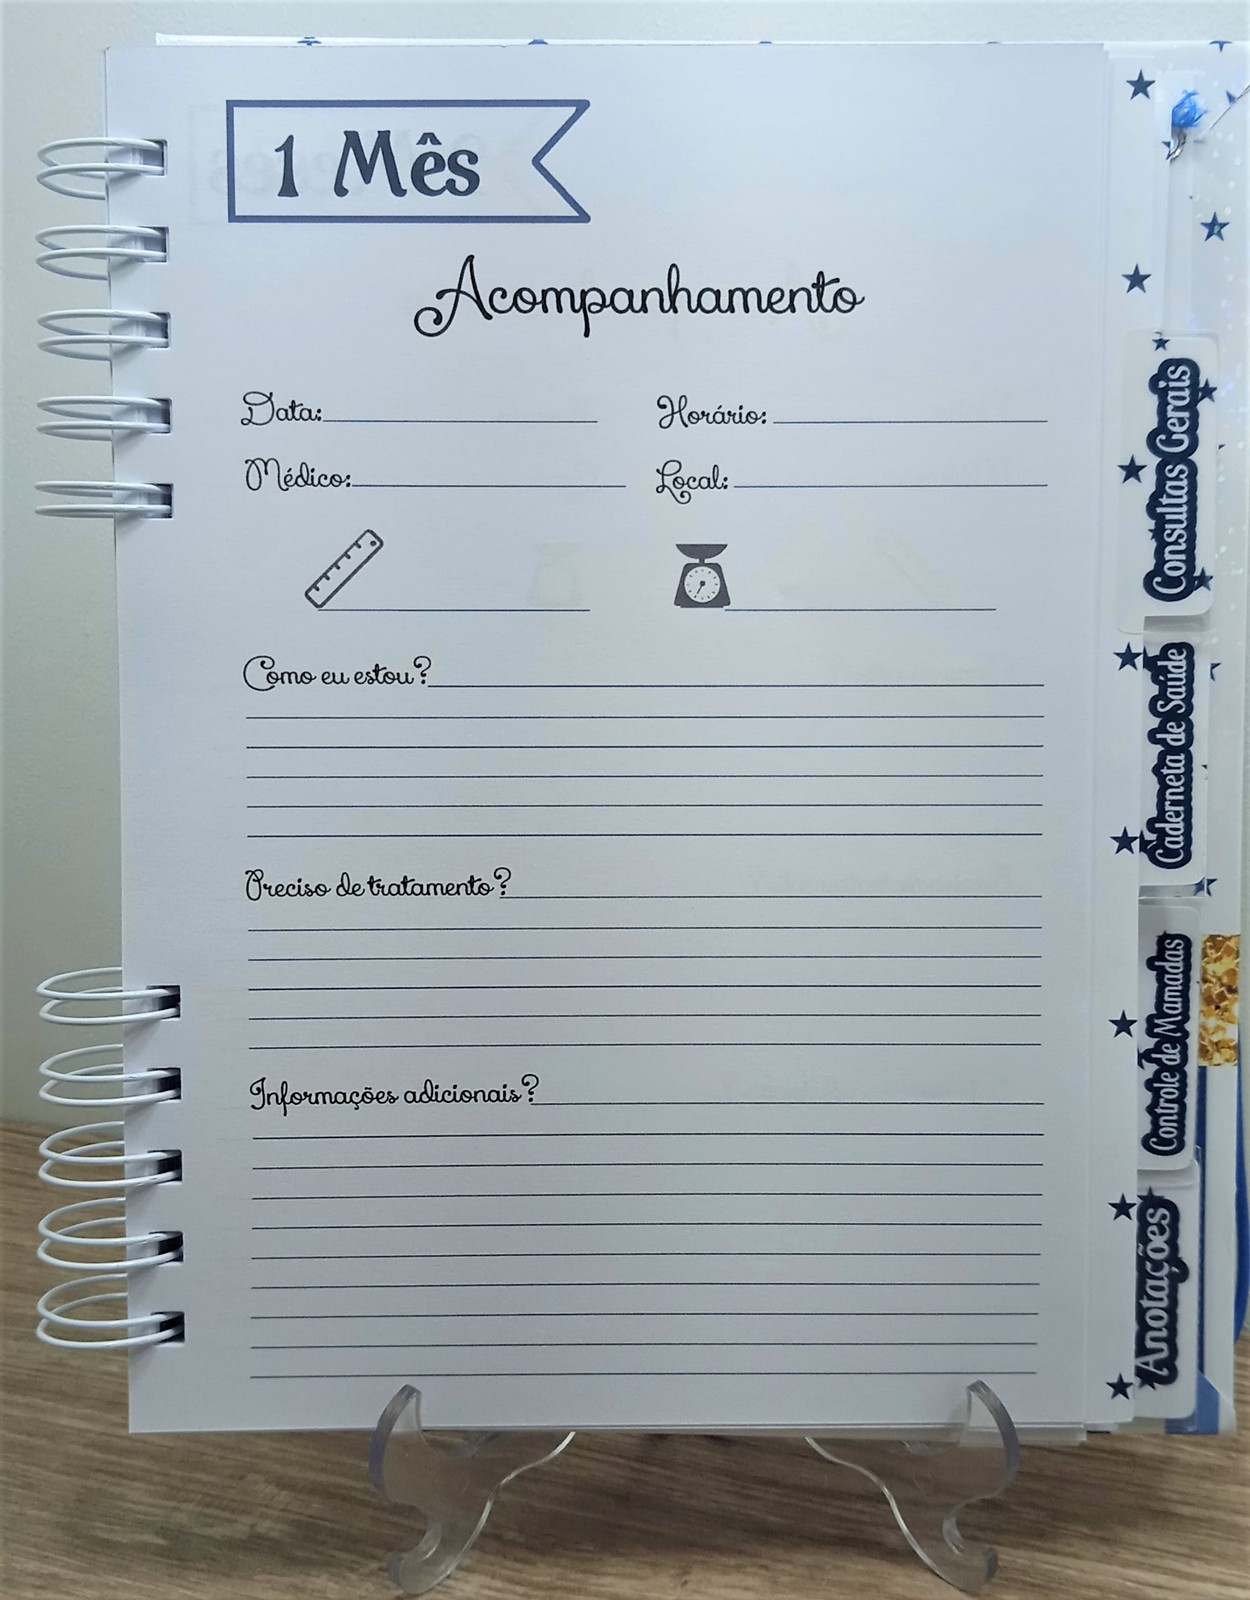 1 Mês
Acompanhamento
Data: Horário:
Médico: Local:
Como eu estou?
Preciso de tratamento?
Informações adicionais?
Consultas Gerais
Caderneta de Saúde
Controle de Mamadas
Anotações